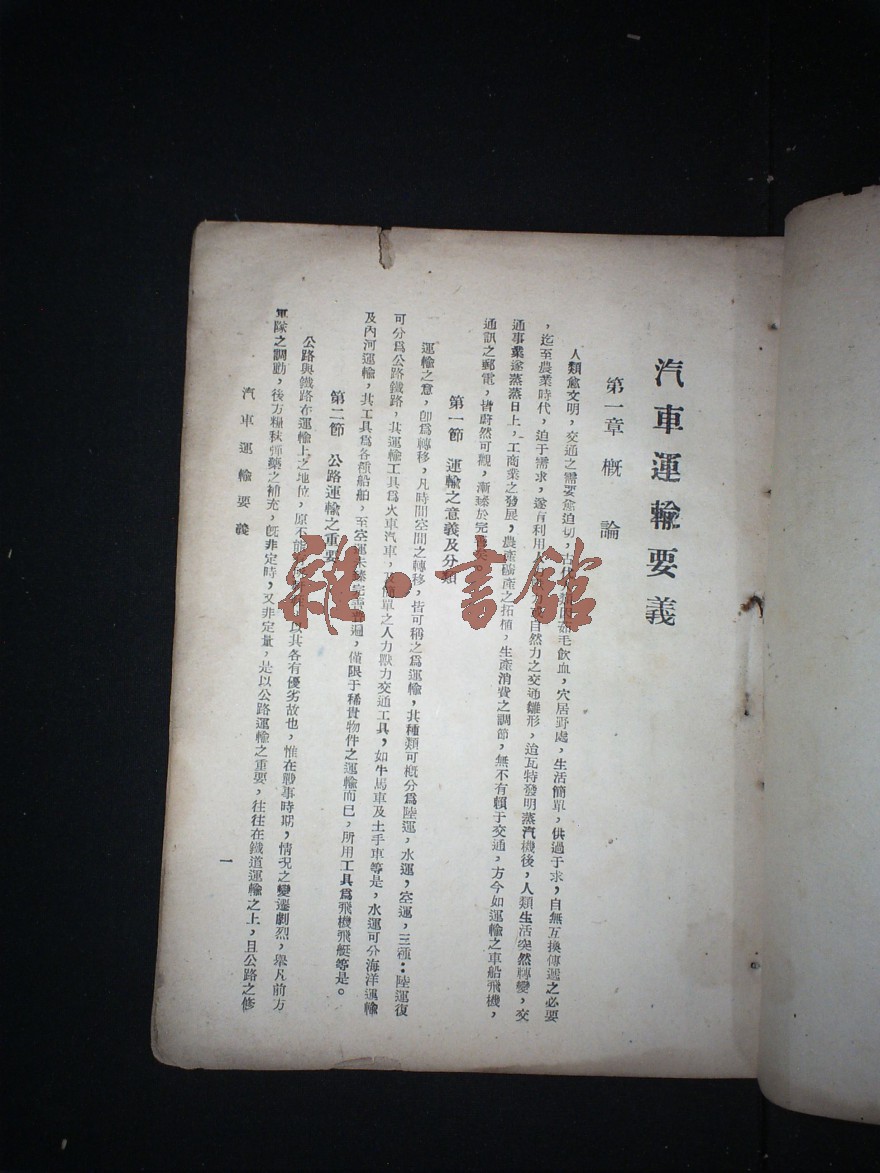 汽車運輸要義
第一章 概論
人類愈文明，交通之需要愈迫切，古代 茹毛飲血，穴居野處，生活簡單，供過于求，自無互換傳遞之必要
，迄至農業時代，迫于需求，遂有利用 自然力之交通雛形，迨瓦特發明蒸汽機後，人類生活突然轉變，交
通事業遂蒸蒸日上，工商業之發展，農產礦產之拓植，生產消費之調節，無不有賴于交通，方今如運輸之車船飛機，
通訊之郵電，皆蔚然可觀，漸臻於完
第一節 運輸之意義及分類
運輸之意，卽爲轉移，凡時間空間之轉移，皆可稱之爲運輸，其種類可概分爲陸運，水運，空運，三種：陸運復
可分爲公路鐵路，其運輸工具爲火車汽車，及簡單之人力獸力交通工具，如牛馬車及土手車等是，水運可分海洋運輸
及內河運輸，其工具爲各種船舶，至空運未臻完 ，僅限于稀貴物件之運輸而已，所用工具爲飛機飛艇等是。
第二節 公路運輸之重要
公路與鐵路在運輸上之地位，原不能 以其各有優劣故也，惟在戰事時期，情況之變遷劇烈，舉凡前方
軍隊之調動，後方糧秣彈藥之補充，旣非定時，又非定量，是以公路運輸之重要，往往在鐵道運輸之上，且公路之修
汽車運輸要義
一
雜·書館